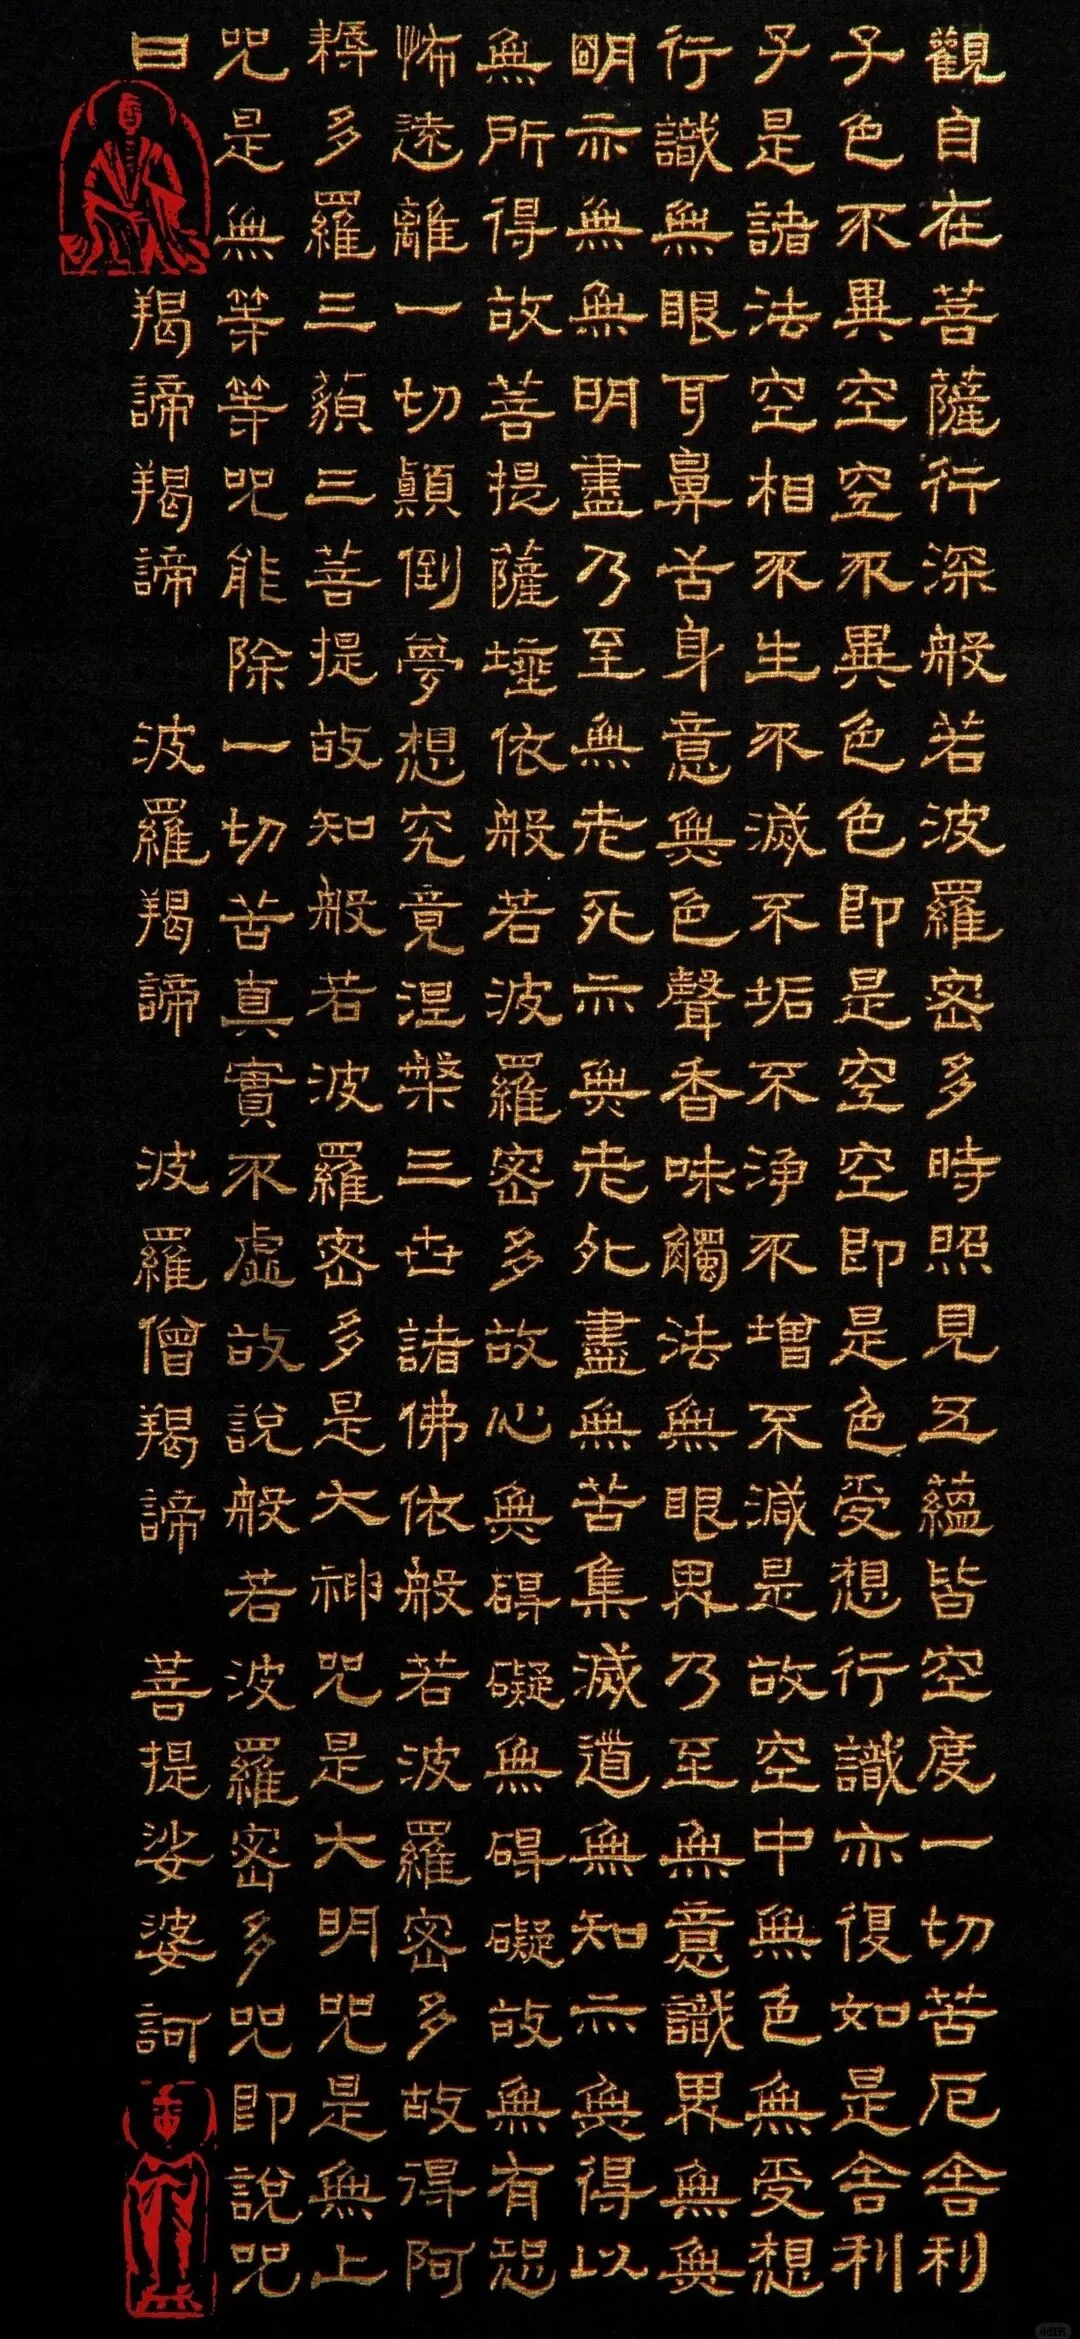 觀自在菩薩行深般若波羅密多時照見五蘊皆空度一切苦厄舍利
子色不異空空不異色色即是空空即是色受想行識亦復如是舍利
子是諸法空相不生不滅不垢不浄不增不減是故空中無色無受想
行識無眼耳鼻舌身意無色聲香味觸法無眼界乃至無意識界無無
明亦無無明盡乃至無老死亦無老死盡無苦集滅道無知亦無得以
無所得故菩提薩埵依般若波羅密多故心無碍礙無碍礙故無有恐
怖遠離一切顛倒夢想究竟涅槃三世諸佛依般若波羅密多故得阿
耨多羅三藐三菩提故知般若波羅密多是大神咒是大明咒是無上
咒是無等等咒能除一切苦真實不虛故說般若波羅密多咒即說咒
曰 羯諦羯諦 波羅羯諦 波羅僧羯諦 菩提娑婆訶
小红书